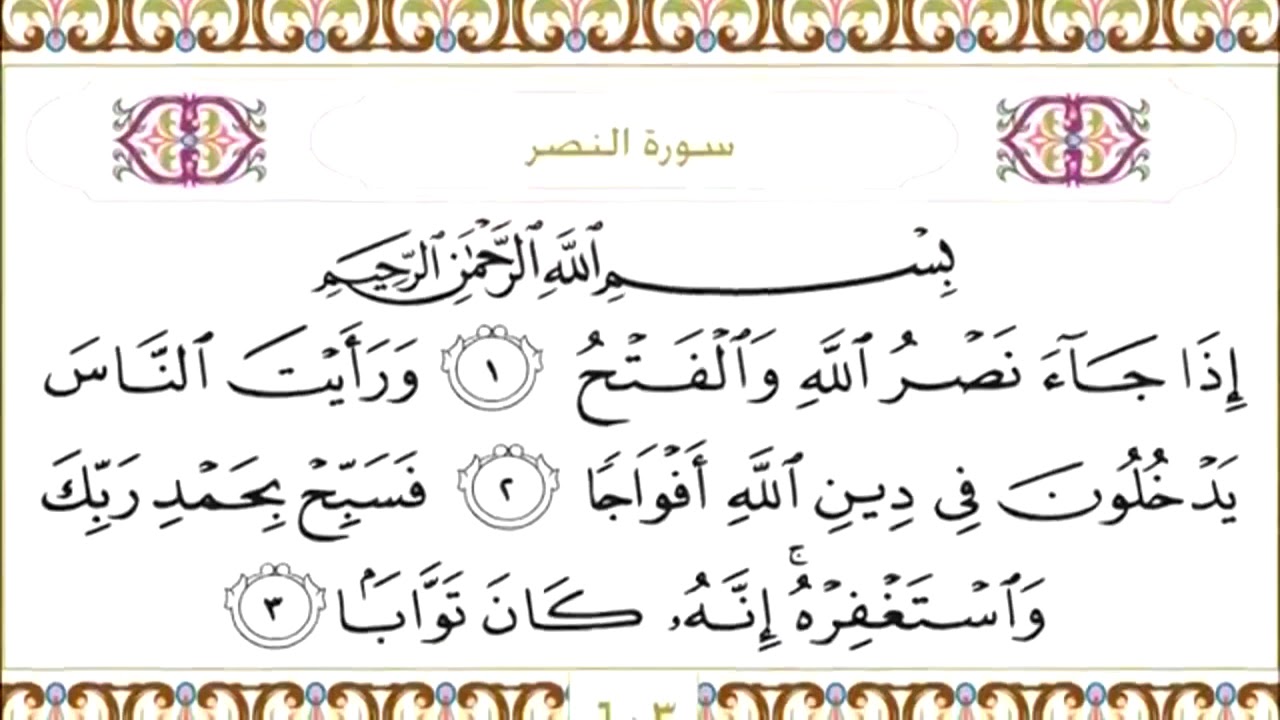 سورة النصر
بِسْمِ ٱللَّهِ ٱلرَّحْمَٰنِ ٱلرَّحِيمِ
إِذَا جَآءَ نَصْرُ ٱللَّهِ وَٱلْفَتْحُ ١ وَرَأَيْتَ ٱلنَّاسَ
يَدْخُلُونَ فِى دِينِ ٱللَّهِ أَفْوَاجًا ٢ فَسَبِّحْ بِحَمْدِ رَبِّكَ
وَٱسْتَغْفِرْهُ ۚ إِنَّهُۥ كَانَ تَوَّابًۢا ٣
٦٠٣